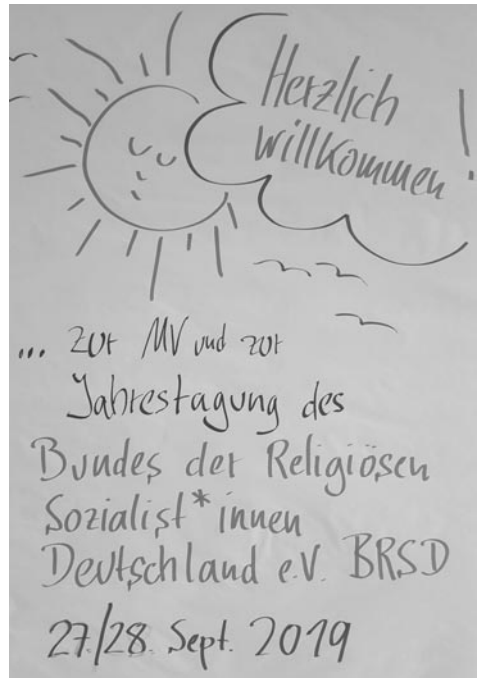 Herzlich
willkommen!
... zur MV und zur
Jahrestagung des
Bundes der Religiösen
Sozialist*innen
Deutschland e.V. BRSD
27./28. Sept. 2019